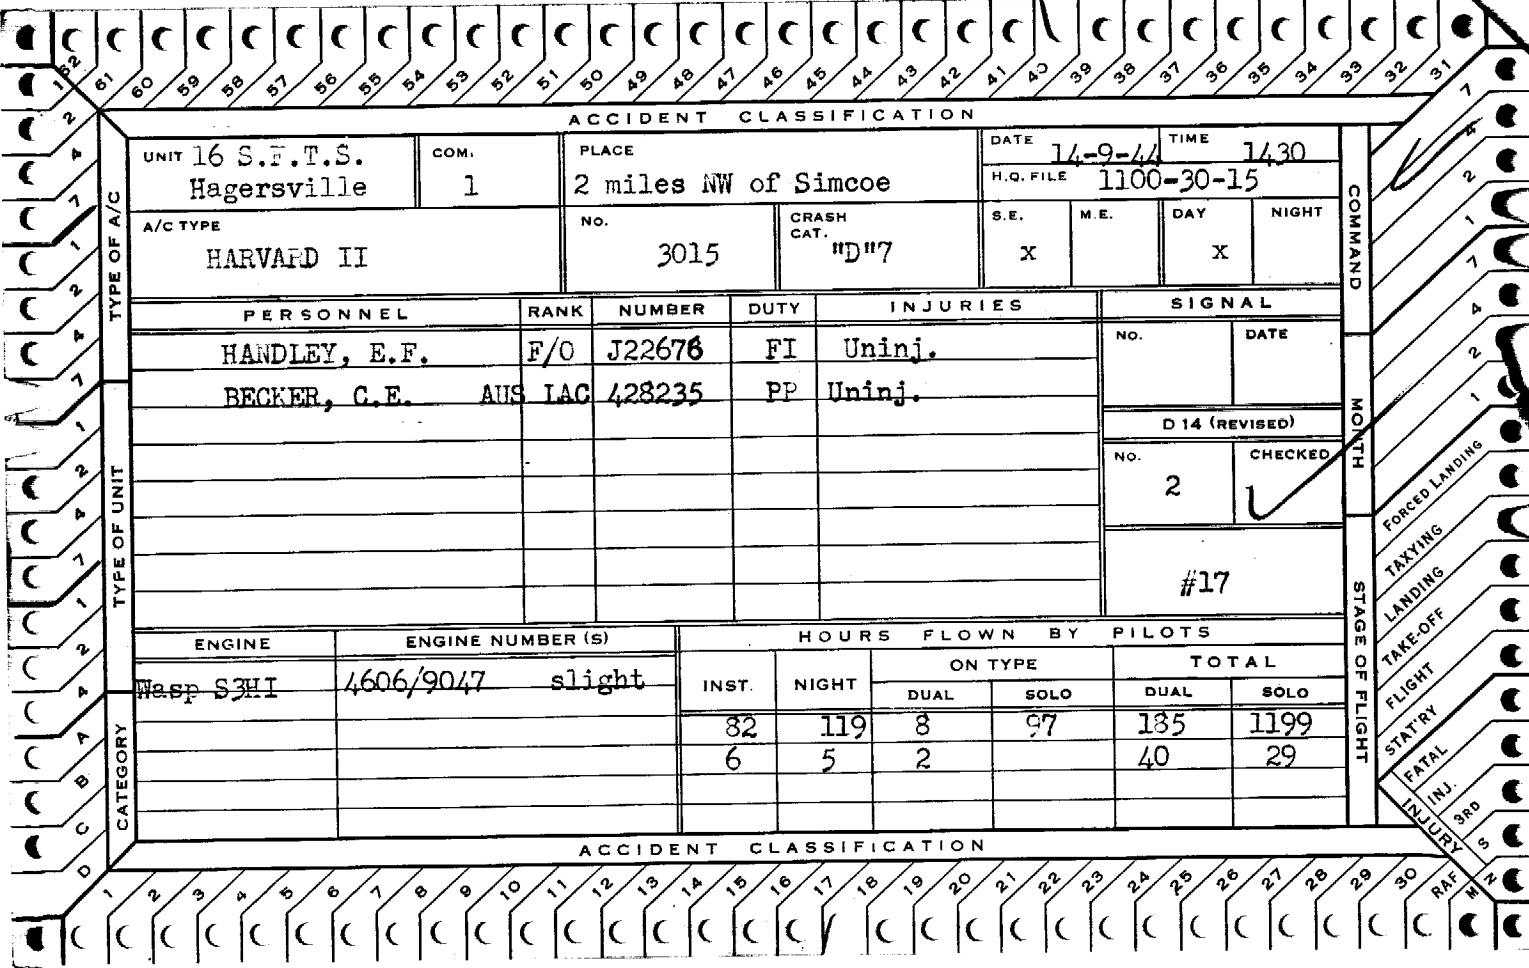 62 61 60 59 58 57 56 55 54 53 52 51 50 49 48 47 46 45 44 43 42 41 40 39 38 37 36 35 34 33 32 31
ACCIDENT CLASSIFICATION
UNIT 16 S.F.T.S.
Hagersville
COM.
1
PLACE
2 miles NW of Simcoe
DATE 14-9-44
TIME 1430
H.Q. FILE 1100-30-15
A/C TYPE
HARVARD II
NO.
3015
CRASH
CAT.
"D"7
S.E. M.E. DAY NIGHT
x x
PERSONNEL RANK NUMBER DUTY INJURIES
HANDLEY, E.F. F/O J22676 FI Uninj.
BECKER, C.E. AUS LAC 428235 PP Uninj.
SIGNAL
NO. DATE
D 14 (REVISED)
NO. CHECKED
2
#17
ENGINE ENGINE NUMBER (S)
Wasp S3HI 4606/9047 slight
HOURS FLOWN BY PILOTS
INST. NIGHT ON TYPE TOTAL
DUAL SOLO DUAL SOLO
82 119 8 97 185 1199
6 5 2 40 29
ACCIDENT CLASSIFICATION
1 2 3 4 5 6 7 8 9 10 11 12 13 14 15 16 17 18 19 20 21 22 23 24 25 26 27 28 29 30 RAF M N
TYPE OF A/C
TYPE OF UNIT
CATEGORY
1 2 4 7 1 2 4 7 1 2 4 7 1 2 4 A B C D
COMMAND
MONTH
STAGE OF FLIGHT
7 4 2 1 7 4 2 1
FORCED LANDING
TAXYING
LANDING
TAKE-OFF
FLIGHT
STAT'RY
FATAL
INJ.
3RD
S
INJURY